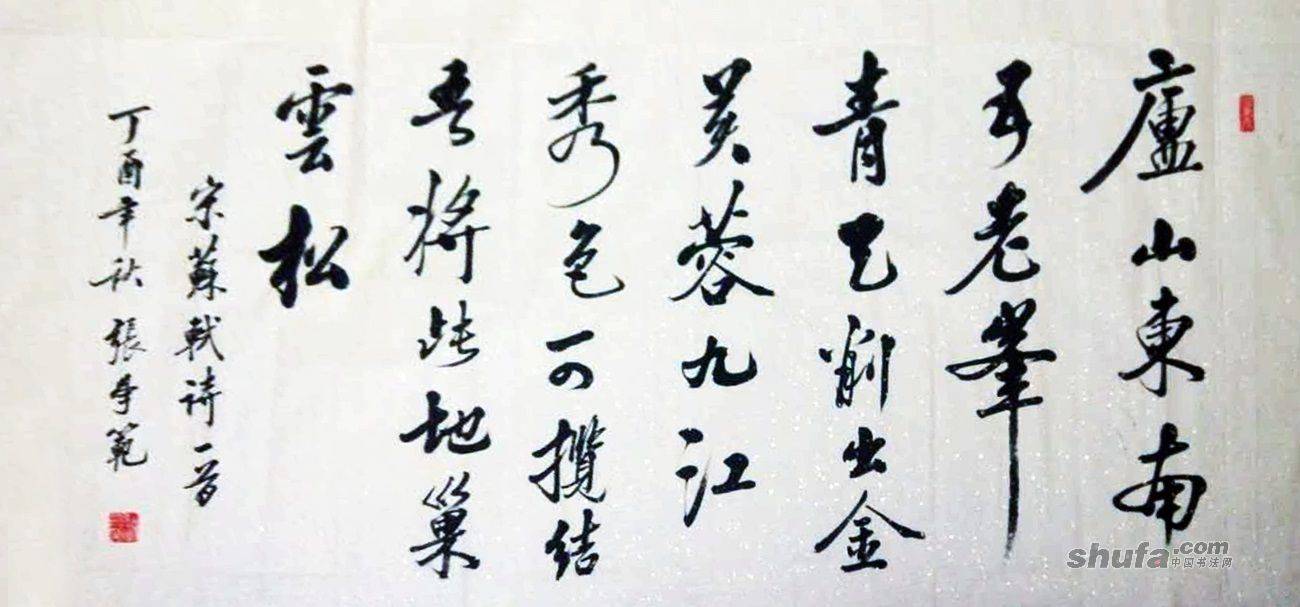 廬山東南
五老峯
青天削出金
芙蓉九江
秀色可攬結
吾將此地巢
雲松
宋蘇軾诗一首
丁酉年秋 張範
shufa.com
中国书法网